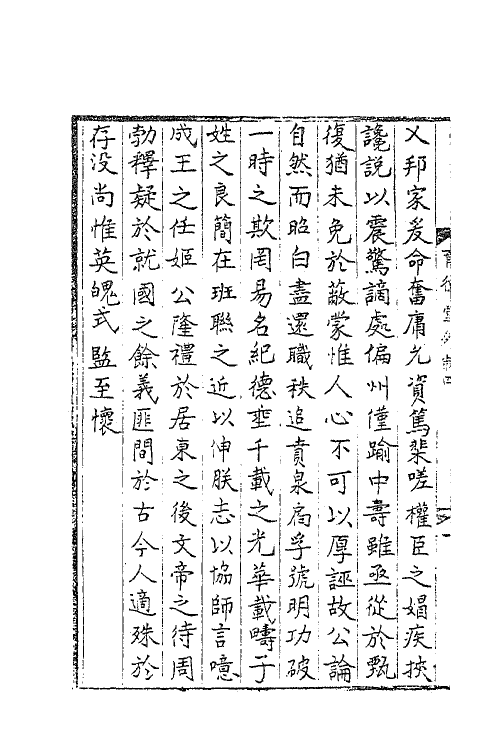 乂邦家爰命奮庸允資篤棐嗟權臣之娼疾挾
讒説以震驚謫處偏州僅踰中壽雖亟從於甄
復猶未免於蔽蒙惟人心不可以厚誣故公論
自然而昭白盡還職秩追賁泉扃孚號明功破
一時之欺罔易名紀德垂千載之光華載疇子
姓之良簡在班聯之近以伸朕志以協師言噫
成王之任姬公隆禮於居東之後文帝之待周
勃釋疑於就國之餘義匪間於古今人適殊於
存没尚惟英魄式監至懷